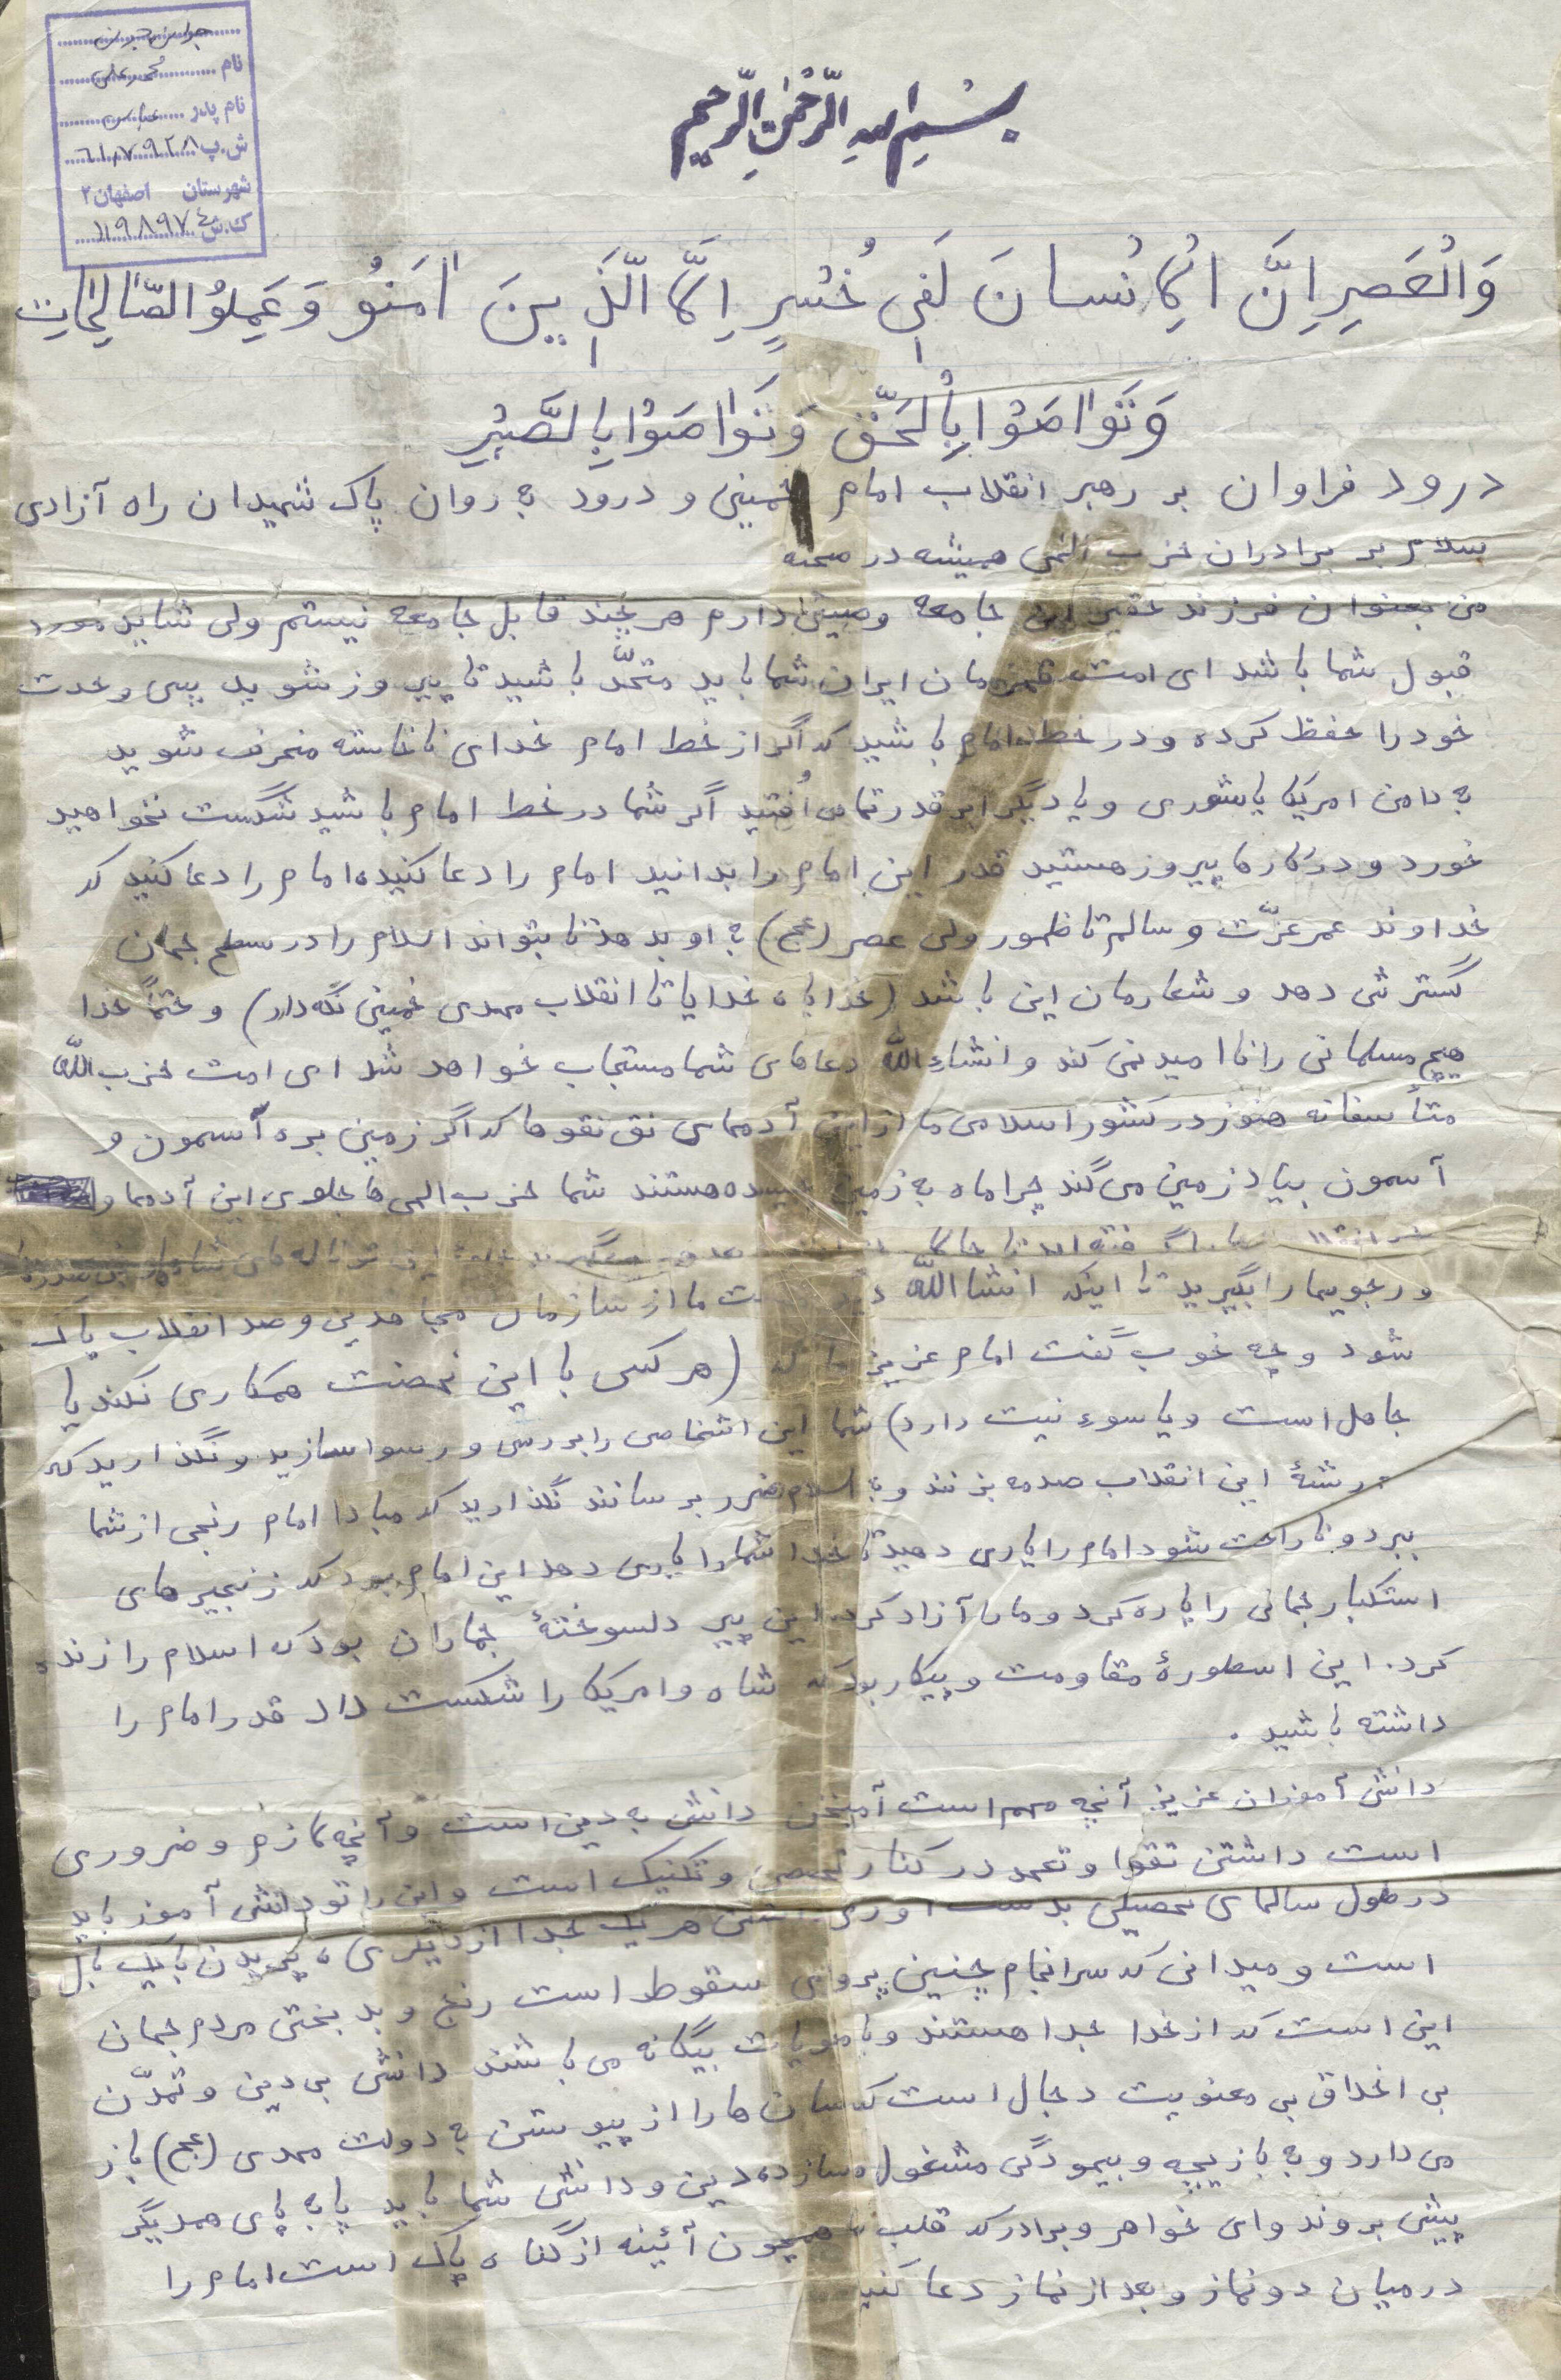 نام محمدعلی
نام پدر عباس
ش.پ ٦١٨٧٩٢٨
شهرستان اصفهان ۲
ک.ش ١١٩٨٩٧٤
بِسْمِ اللهِ الرَّحْمٰنِ الرَّحیمِ
وَالْعَصِرِ اِنَّ الْاِنْسانَ لَفی خُسْرٍ اِلَّا الَّذَینَ امَنُو وَ عَمِلوُ الصّالِحاتِ
وَ تَوَاصَوْا بِالْحَقّ وَ تَوَاصَوْا بِالصَّبْرِ
درود فراوان بر رهبر انقلاب امام خمینی و درود به روان پاک شهیدان راه آزادی
سلام بر برادران حزب الهی همیشه در صحنه
من بعنوان فرزند حقیر این جامعه وصیتی دارم هر چند قابل جامعه نیستم ولی شاید مورد
قبول شما باشد ای امت قهرمان ایران شما باید متحّد باشید تا پیروز شوید پس وحدت
خود را حفظ کرده و در خط امام باشید که اگر از خط امام خدای ناخاسته منحرف شوید
به دامن امریکا یا شوروی و یا دیگر ابرقدرتها می اُفتید اگر شما در خط امام باشید شکست نخواهید
خورد و در کارها پیروز هستید قدر این امام را بدانید امام را دعا کنید، امام را دعا کنید که
خداوند عمر عزّت و سالم تا ظهور ولی عصر (عج) به او بدهد تا بتواند اسلام را در سطح جهان
گسترش دهد و شعارمان این باشد (خدایا، خدایا تا انقلاب مهدی خمینی نگه دار) و حتماً خدا
هیچ مسلمانی را نا امید نمی کند و انشاء الله دعاهای شما مستجاب خواهد شد ای امت حزب الله
متأسفانه هنوز در کشور اسلامی ما از این آدمهای نق نقوها که اگر زمین بره آسمون و
آسمون بیاد زمین می گند چرا ماه به زمین چسبیده هستند شما حزب الهی ها جلوی این آدمها و
و رجویها را بگیرید تا اینکه انشا الله ما از سازمان مجاهدین و ضد انقلاب پاک
شود و چه خوب گفت امام عزیز ما که (هر کسی با این نهضت همکاری نکند یا
جاهل است و یا سوء نیت دارد) شما این اشخاص را بررسی و رسوا سازید و نگذارید که
به رشهٔ این انقلاب صدمه بزنند و به اسلام ضرر برسانند نگذارید که مبادا امام رنجی از شما
ببرد و ناراحت شود امام را یاری دهید تا خدا شما را یاری دهد این امام بود که زنجیرهای
استکبار جهانی را پاره کرد و ما را آزاد کرد این پیر دلسوختهٔ جماران بود که اسلام را زنده
کرد. این اسطورهٔ مقاومت و پیکار بود که شاه و امریکا را شکست داد قدر امام را
داشته باشید.
دانش آموزان عزیز آنچه مهم است آمیختن دانش به دین است و آنچه لازم و ضروری
است داشتن تقوا و تعهد در کنار تخصص و تکنیک است و این را تو دانش آموز باید
در طول سالهای تحصیلی بدست آوری داشتن هر یک جدا از دیگری، پریدن با یک بال
است و میدانی که سرانجام چنین پروازی سقوط است رنج و بدبختی مردم جهان
این است که از خدا جدا هستند و با معنویات بیگانه می باشند دانش بی دین و تمدّن
بی اخلاق بی معنویت دجال است که انسان ها را از پیوستن به دولت مهدی (عج) باز
می دارد و به بازیچه و بیهودگی مشغول میسازد، دین و دانش شما باید پا به پای همدیگر
پیش بروند و ای خواهر و برادر که قلبت همچون آئینه از گناه پاک است امام را
در میان دو نماز و بعد از نماز دعا کنید